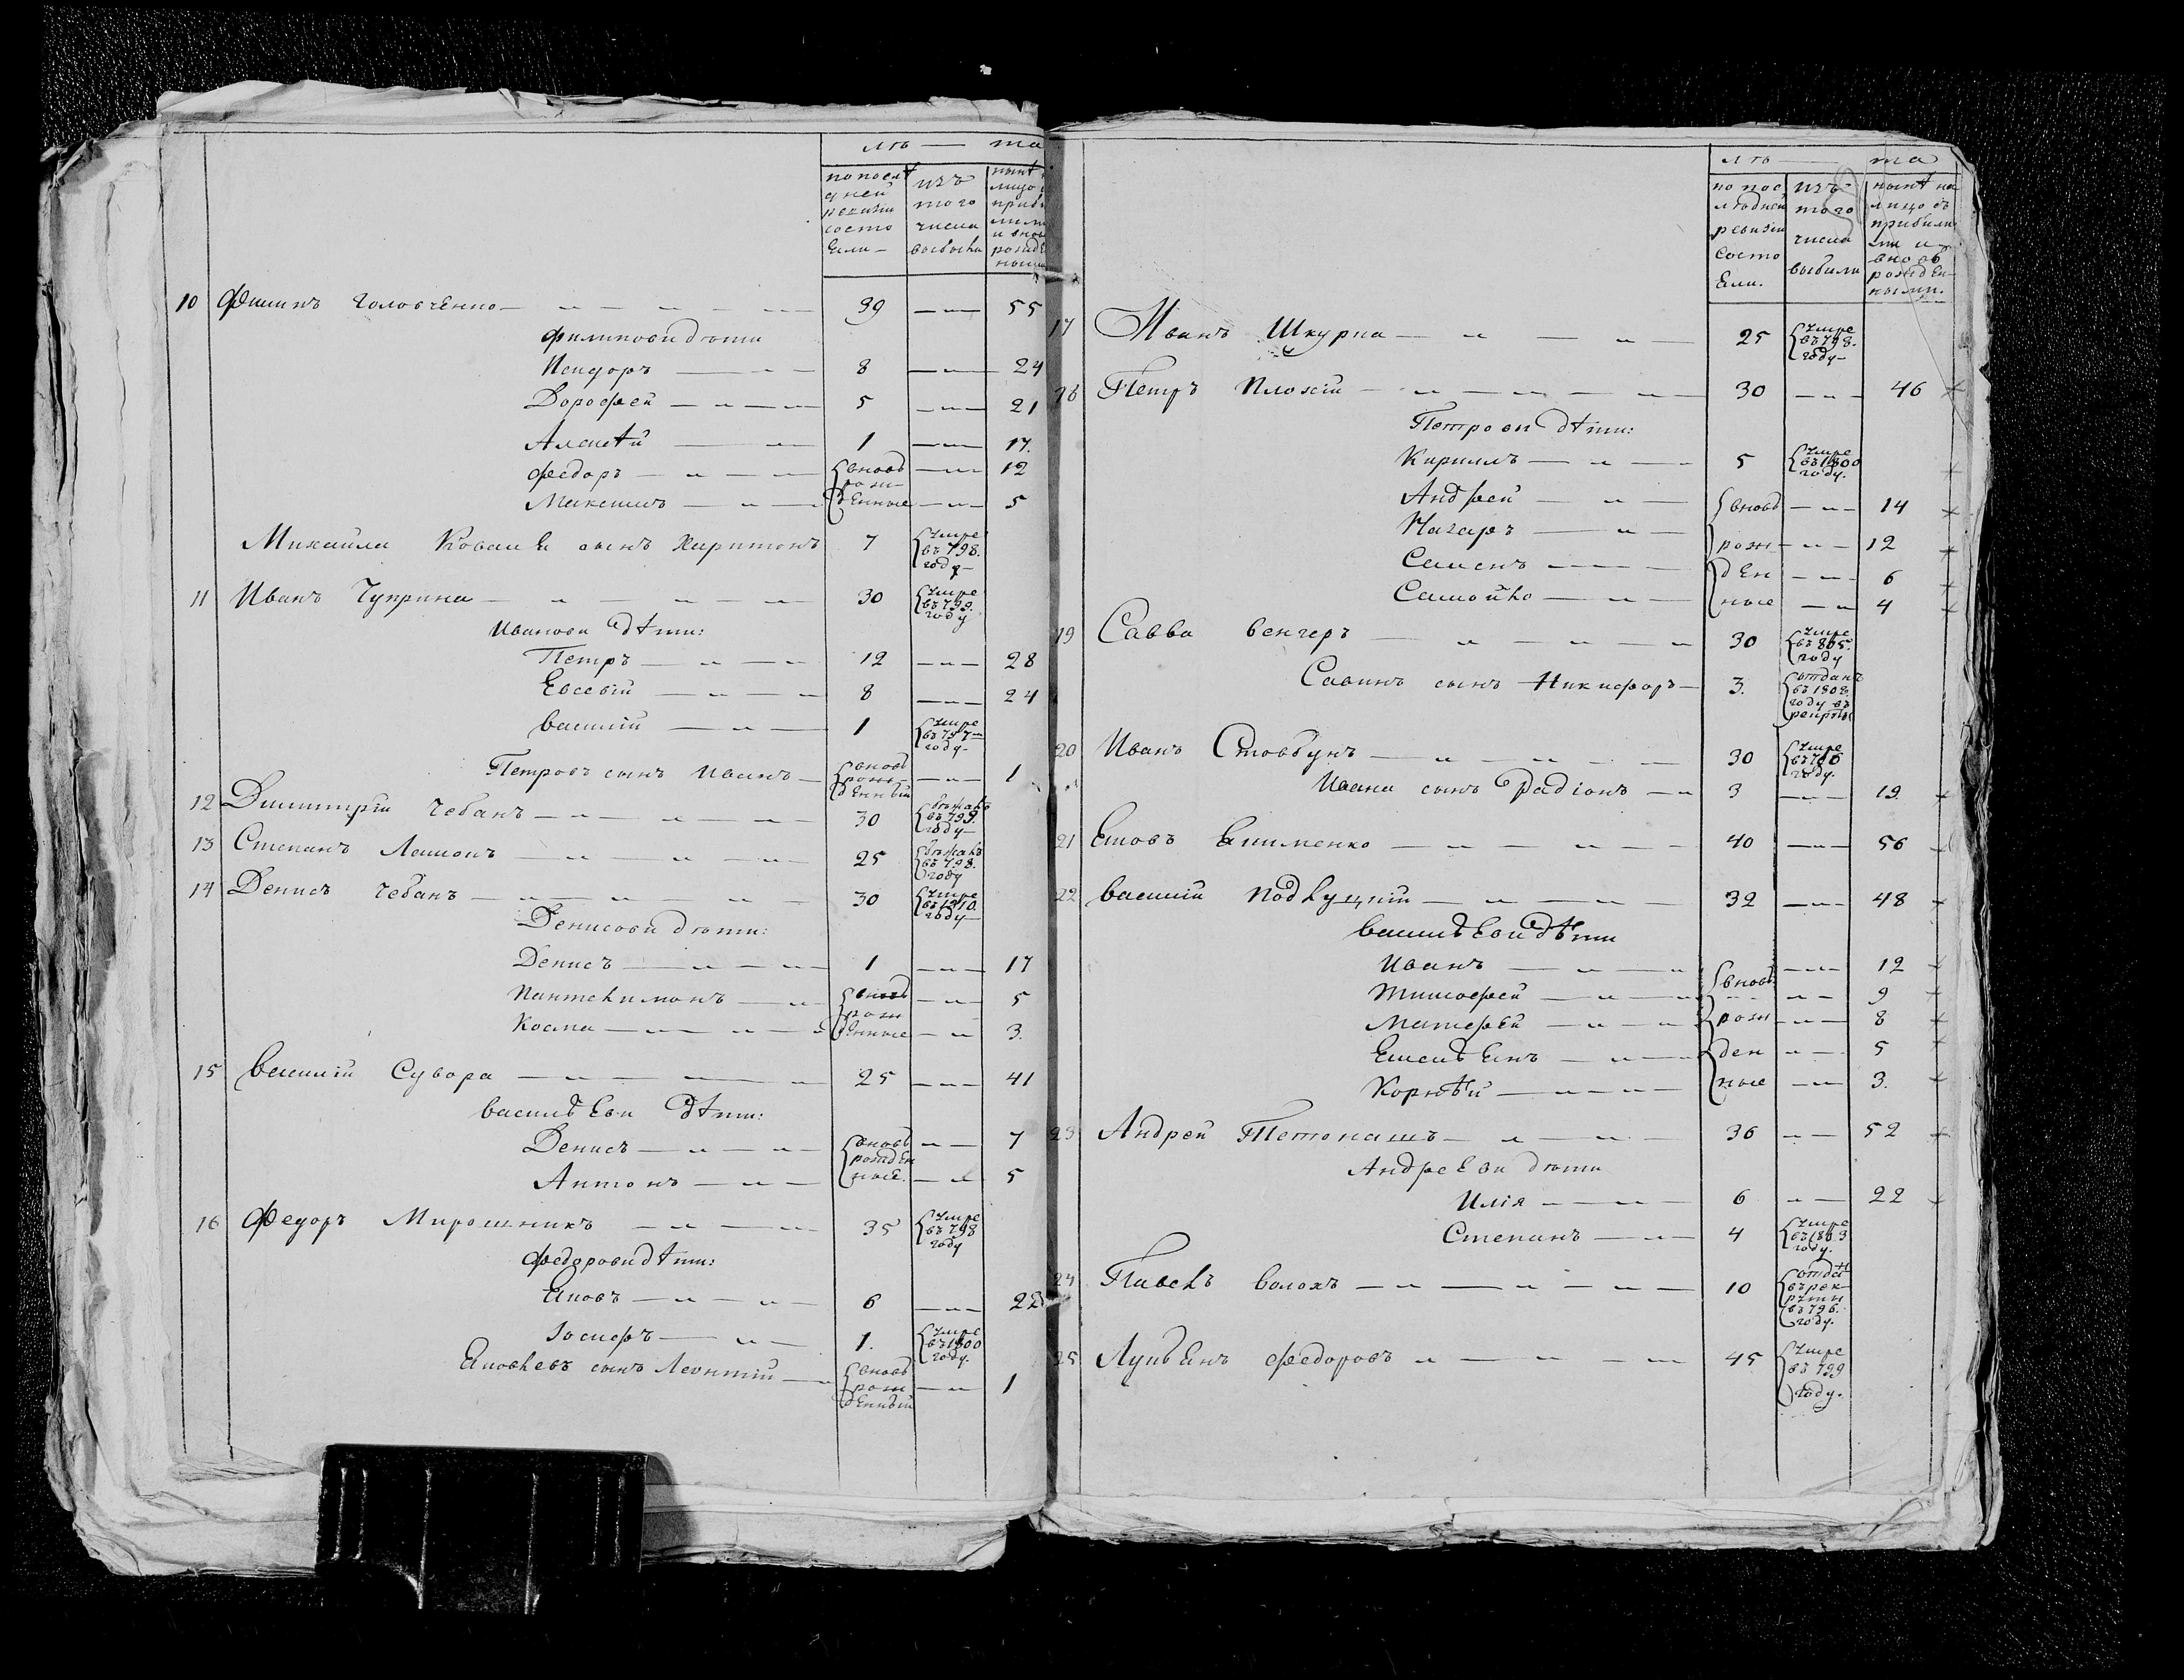 лѣ — та
по послѣ
дней
ревизіи
состо
Ели —
изъ
того
числа
выбыло
нынѣ
лицо
10 Филипъ Головченко — 39 — 55
Филипови дѣти
Исидоръ — 8 — 24
Дорофей — 5 — 21
Алексѣй — 1 — 17.
Федоръ — вновь — 12
рож
Максимъ — денные — 5
Михайла Ковали сынъ Харитонъ 7 умре
въ 798.
году —
11 Иванъ Чуприна — 30 умре
въ 799.
году
Иванови дѣти:
Петръ — 12 — 28
Евсевій — 8 — 24
Василій — 1 умре
въ 797
году —
Петровъ сынъ Иванъ — вновь
рож — 1
денный
12 Димитрій Чебанъ — 30 бѣжалъ
въ 799.
году —
13 Степанъ 25 бѣжалъ
въ 798.
году
14 Денисъ Чебанъ — 30 умре
въ 1810.
году —
Денисови дѣти:
Денисъ — 1 — 17
Пантелимонъ — вновь — 5
рож
Косма — денные — 3.
15 Василій Сувора — 25 — 41
Василѣеви дѣти:
Денисъ — вновь — 7
рожден
Антонъ — ные. — 5
16 Федоръ Мирошникъ — 35 умре
въ 798
году
Федорови дѣти:
Яковъ — 6 — 22
Іосифъ — 1. умре
въ 1800
году.
Яковлевъ сынъ Леонтій — вновь
рож — 1
денный
лѣ — та
по пос
лѣдней
ревизіи
состо
Ели.
изъ
того
числа
выбыли
нынѣ на
лицо съ
прибылы
ми и
вновь
рожден
ными.
17 Иванъ Шкурпа — 25 умре
въ 798.
году —
18 Петръ Плохій — 30 — 46
Петрови дѣти:
Кирилъ — 5 умре
въ 1800
году.
Андрей — вновь — 14
Назаръ — рож — 12
Семенъ — ден — 6
Самойло — ные — 4
19 Савва Венгеръ — 30 умре
въ 805.
году
Савинъ сынъ Никифоръ — 3. отданъ
въ 1808.
году въ
рекруты
20 Иванъ Стовбунъ — 30 умре
въ 796
году.
Ивана сынъ Радіонъ — 3 — 19.
21 Яковъ Якименко — 40 — 56
22 Василій Подлуцкій — 32 — 48
Василѣеви дѣти
Иванъ — вновь — 12
Тимофей — 9
Матфѣй — рож — 8
Емелѣянъ — ден — 5
Корнѣй — ные — 3.
23 Андрей — 36 — 52
Андрееви дѣти
Илія — 6 — 22
Степанъ — 4 умре
въ 1803
году.
24 Павелъ Волохъ — 10 отда
въ рек
руты
въ 796.
году.
25 Лукѣянъ Федоровъ — 45 умре
въ 799
году.